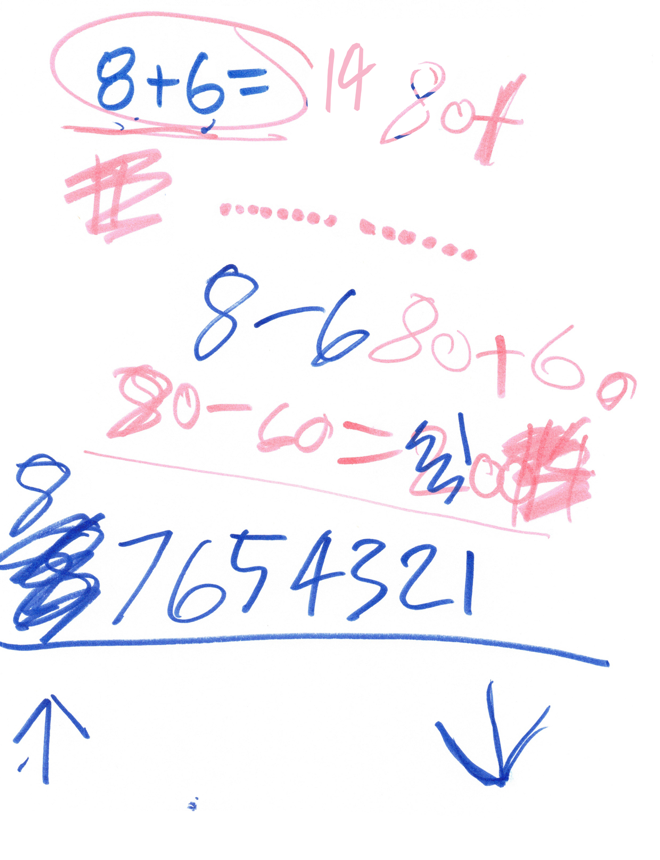 8+6= 14 80+
8-6 80+60
80-60=
8 7654321